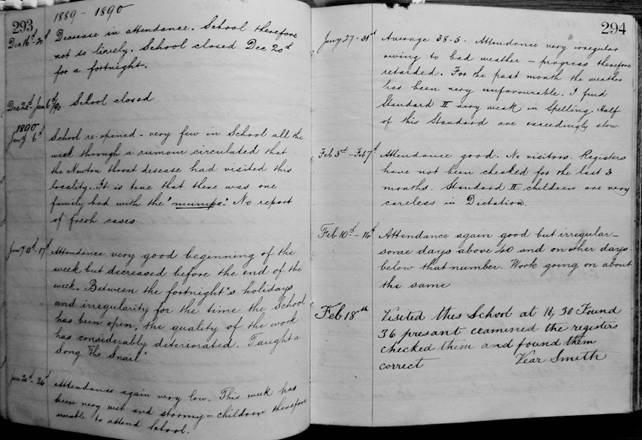 293
1889 - 1890
Dec 16th - 20th Decrease in attendance. School therefore
not so lively. School closed Dec 20th
for a fortnight.
School closed
1890
Jany 6th School re-opened - very few in School all the
week through a rumour circulated that
the Newton throat disease had visited this
locality. It is true that there was one
family bad with the "mumps". No report
of fresh cases
Attendance very good beginning of the
week but decreased before the end of the
week. Between the fortnight's holidays
and irregularity for the time the School
has been open, the quality of the work
has considerably deteriorated. Taught a
Song "The Snail"
Attendance again very low. This week has
been very wet and stormy - children therefore
unable to attend School.
294
Jany 27 - 31st Average 38.5. Attendance very irregular
owing to bad weather - progress therefore
retarded. For the past month the weather
has been very unfavourable. I find
Standard II very weak in Spelling. Half
of this Standard are exceedingly slow
Feb 3rd - Feb 7th Attendance good. No visitors. Registers
have not been checked for the last 3
months. Standard II children are very
careless in Dictation.
Feb 10th - 14th Attendance again good but irregular -
some days above 40 and on other days
below that number. Work going on about
the same
Feb 18th Visited this School at 11,30 Found
36 presant examined the registers
checked them and found them
correct Vear Smith